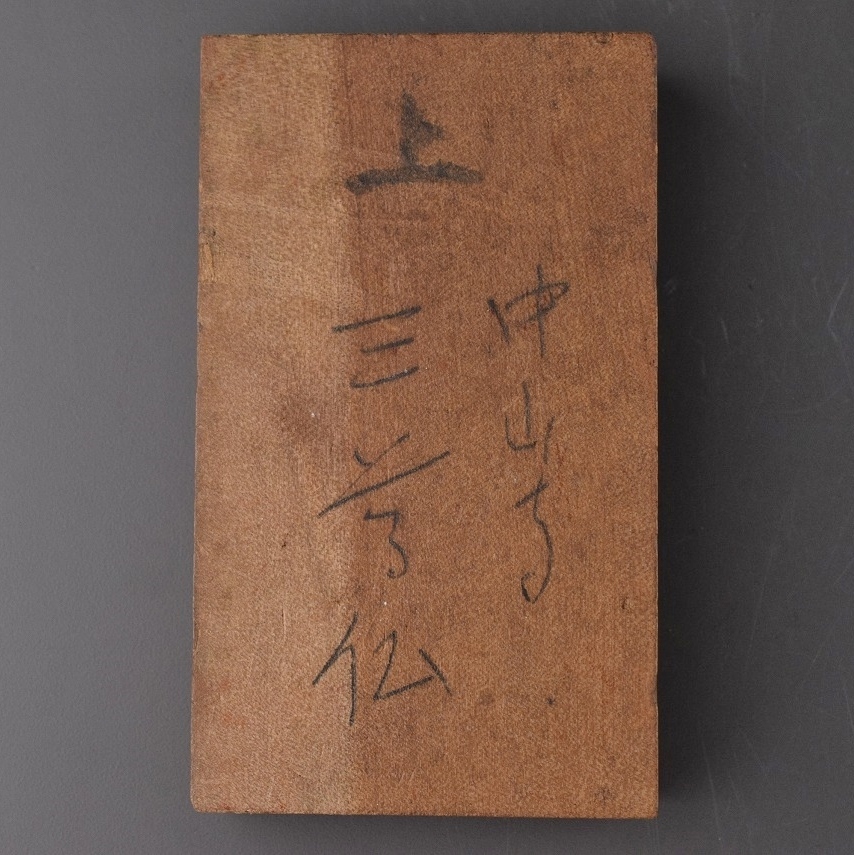 上
中山寺
三尊仏